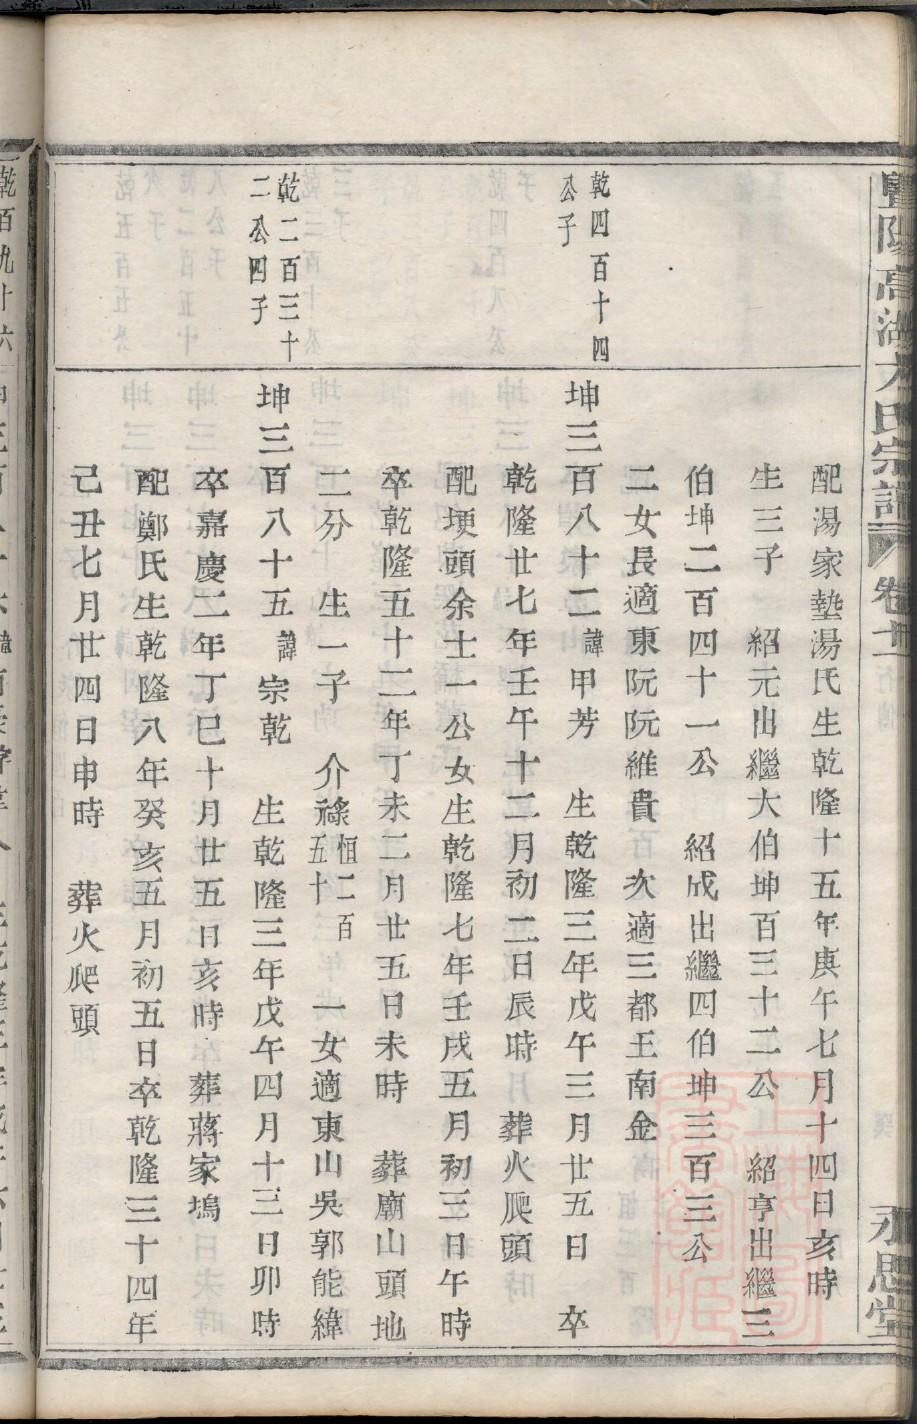 暨陽高湖方氏宗譜 卷十二 永思堂
配湯家墊湯氏生乾隆十五年庚午七月十四日亥時
生三子 紹元出繼大伯坤百三十二公 紹亨出繼三
伯坤二百四十一公 紹成出繼四伯坤三百三公
二女長適東阮阮維貴 次適三都王南金
乾四百十四
公子
坤三百八十二諱甲芳 生乾隆三年戊午三月廿五日 卒
乾隆廿七年壬午十二月初二日辰時 葬火爬頭
配埂頭余士一公女生乾隆七年壬戌五月初三日午時
卒乾隆五十二年丁未二月廿五日未時 葬廟山頭地
二分 生一子 介祿恒二百五十 一女適東山吳郭能緯
乾二百三十
二公四子
坤三百八十五諱宗乾 生乾隆三年戊午四月十三日卯時
卒嘉慶二年丁巳十月廿五日亥時 葬蔣家塢
配鄭氏生乾隆八年癸亥五月初五日卒乾隆三十四年
己丑七月廿四日申時 葬火爬頭
乾百九十六